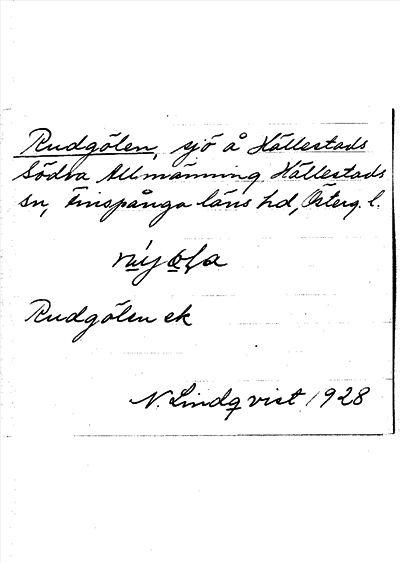 Rudgölen, sjö å Hällestads
Södra Allmänning Hällestads
sn, Finspånga läns hd, Österg. l.
Rudgölen ek
N. Lindqvist 1928